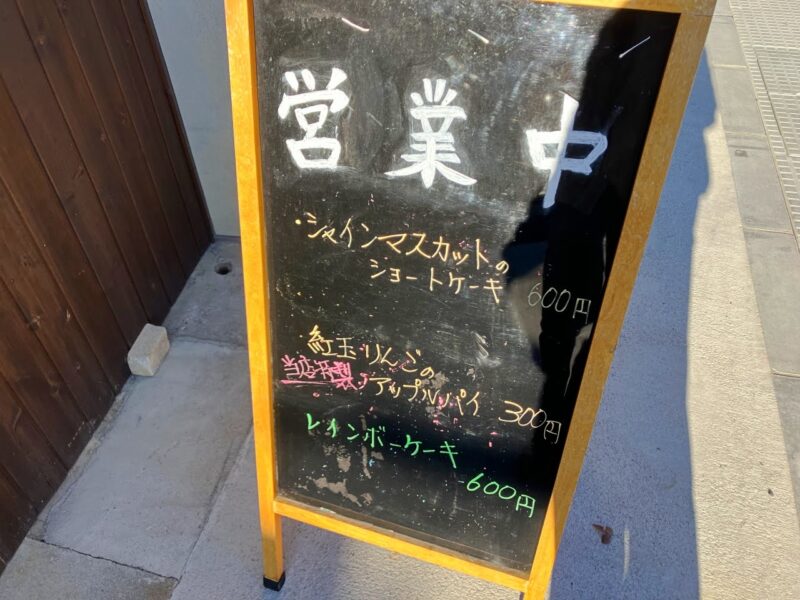 営業中
・シャインマスカットの
ショートケーキ 600円
紅玉りんごの
当店特製 アップルパイ 300円
レインボーケーキ
600円